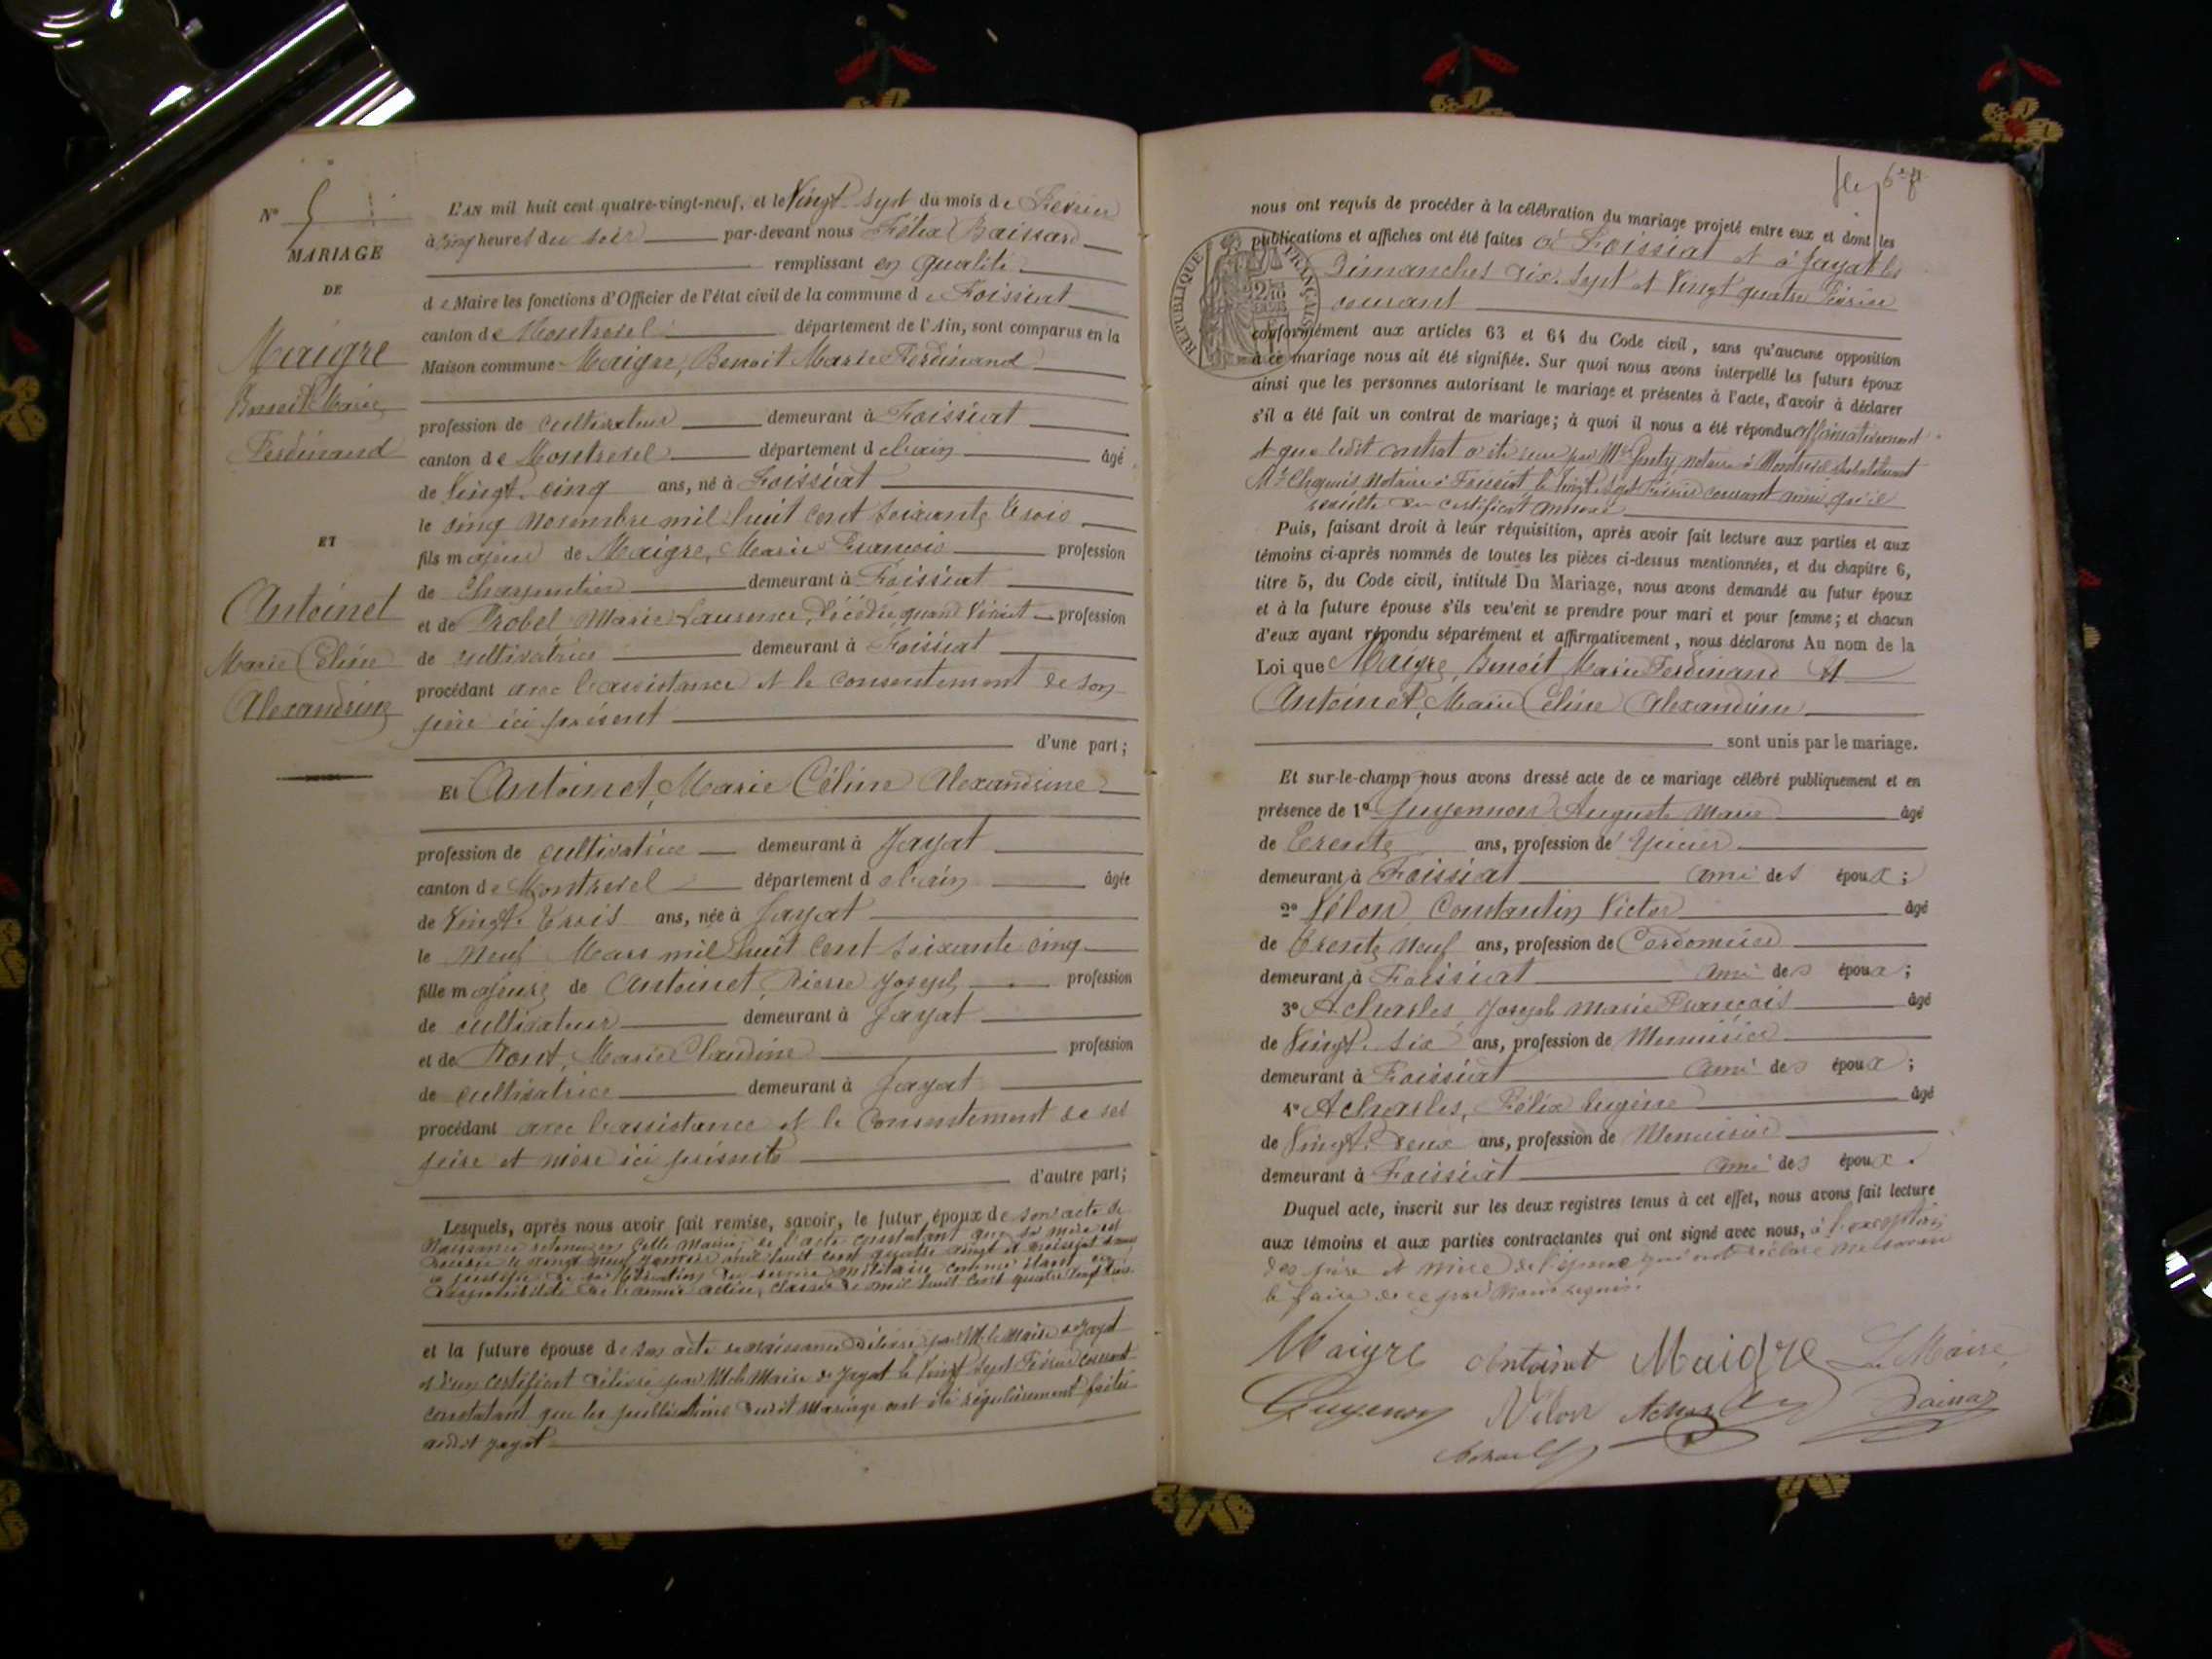 N° 5
MARIAGE
DE
Maigre
Benoit Marie
Ferdinand
ET
Antoinet
Marie Céline
Alexandrine
L'AN mil huit cent quatre-vingt-neuf, et le Vingt sept du mois de Février
à cinq heures du soir par-devant nous Félix
remplissant en qualité
de Maire les fonctions d'Officier de l'état civil de la commune de Foissiat
canton de Montrevel département de l'Ain, sont comparus en la
Maison commune Maigre, Benoit Marie Ferdinand
profession de cultivateur demeurant à Foissiat
canton de Montrevel département de l'ain âgé
de Vingt cinq ans, né à Foissiat
le cinq novembre mil huit cent soixante trois
fils majeur de Maigre, Marie François profession
de Charpentier demeurant à Foissiat
et de Probel Marie Laurence, décédée, quand vivait profession
de cultivatrice demeurant à Foissiat
procédant avec l'assistance et le consentement de son
père ici présent
d'une part;
Et Antoinet, Marie Céline Alexandrine
profession de cultivatrice demeurant à Jayat
canton de Montrevel département de l'ain âgée
de Vingt Trois ans, née à Jayat
le neuf Mars mil huit cent soixante cinq
fille majeure de Antoinet, Pierre Joseph profession
de cultivateur demeurant à Jayat
et de Pont, Marie Claudine profession
de cultivatrice demeurant à Jayat
procédant avec l'assistance et le consentement de ses
père et mère ici présents
d'autre part;
Lesquels, après nous avoir fait remise, savoir, le futur époux de son acte de
naissance retenu en cette Mairie, de l'acte constatant que sa mère est
décédée le vingt neuf Janvier mil huit cent quatre vingt et
a justifié de sa libération du service militaire comme étant en
disponibilité de l'armée active, classe de mil huit cent quatre vingt trois
et la future épouse de son acte de naissance délivré par M. le Maire de Jayat
et d'un certificat délivré par M. le Maire de Jayat le Vingt sept Février courant
constatant que les publications dudit mariage ont été régulièrement faites
audit Jayat
nous ont requis de procéder à la célébration du mariage projeté entre eux et dont les
publications et affiches ont été faites à Foissiat et à Jayat les
Dimanches dix sept et Vingt quatre Février
courant
RÉPUBLIQUE FRANÇAISE
conformément aux articles 63 et 64 du Code civil, sans qu'aucune opposition
à ce mariage nous ait été signifiée. Sur quoi nous avons interpellé les futurs époux
ainsi que les personnes autorisant le mariage et présentes à l'acte, d'avoir à déclarer
s'il a été fait un contrat de mariage; à quoi il nous a été répondu affirmativement
et que ledit contrat a été reçu par Me notaire à Montrevel substituant
Me notaire à Foissiat le Vingt sept Février courant ainsi qu'il
résulte du certificat annexé
Puis, faisant droit à leur réquisition, après avoir fait lecture aux parties et aux
témoins ci-après nommés de toutes les pièces ci-dessus mentionnées, et du chapitre 6,
titre 5, du Code civil, intitulé Du Mariage, nous avons demandé au futur époux
et à la future épouse s'ils veulent se prendre pour mari et pour femme; et chacun
d'eux ayant répondu séparément et affirmativement, nous déclarons Au nom de la
Loi que Maigre, Benoit Marie Ferdinand Et
Antoinet, Marie Céline Alexandrine
sont unis par le mariage.
Et sur-le-champ nous avons dressé acte de ce mariage célébré publiquement et en
présence de 1° Guyennon Auguste Marie âgé
de trente ans, profession d'Epicier
demeurant à Foissiat ami des époux;
2° Vélon Constantin Victor âgé
de trente neuf ans, profession de Cordonnier
demeurant à Foissiat ami des époux;
3° Acharles Joseph Marie François âgé
de Vingt six ans, profession de Menuisier
demeurant à Foissiat ami des époux;
4° Acharles, Félix Eugène âgé
de Vingt deux ans, profession de Menuisier
demeurant à Foissiat ami des époux.
Duquel acte, inscrit sur les deux registres tenus à cet effet, nous avons fait lecture
aux témoins et aux parties contractantes qui ont signé avec nous, à l'exception
des père et mère de l'épouse qui ont déclaré ne savoir
le faire de ce par nous requis.
Maigre Antoinet Maigre Le Maire
Guyennon Vélon